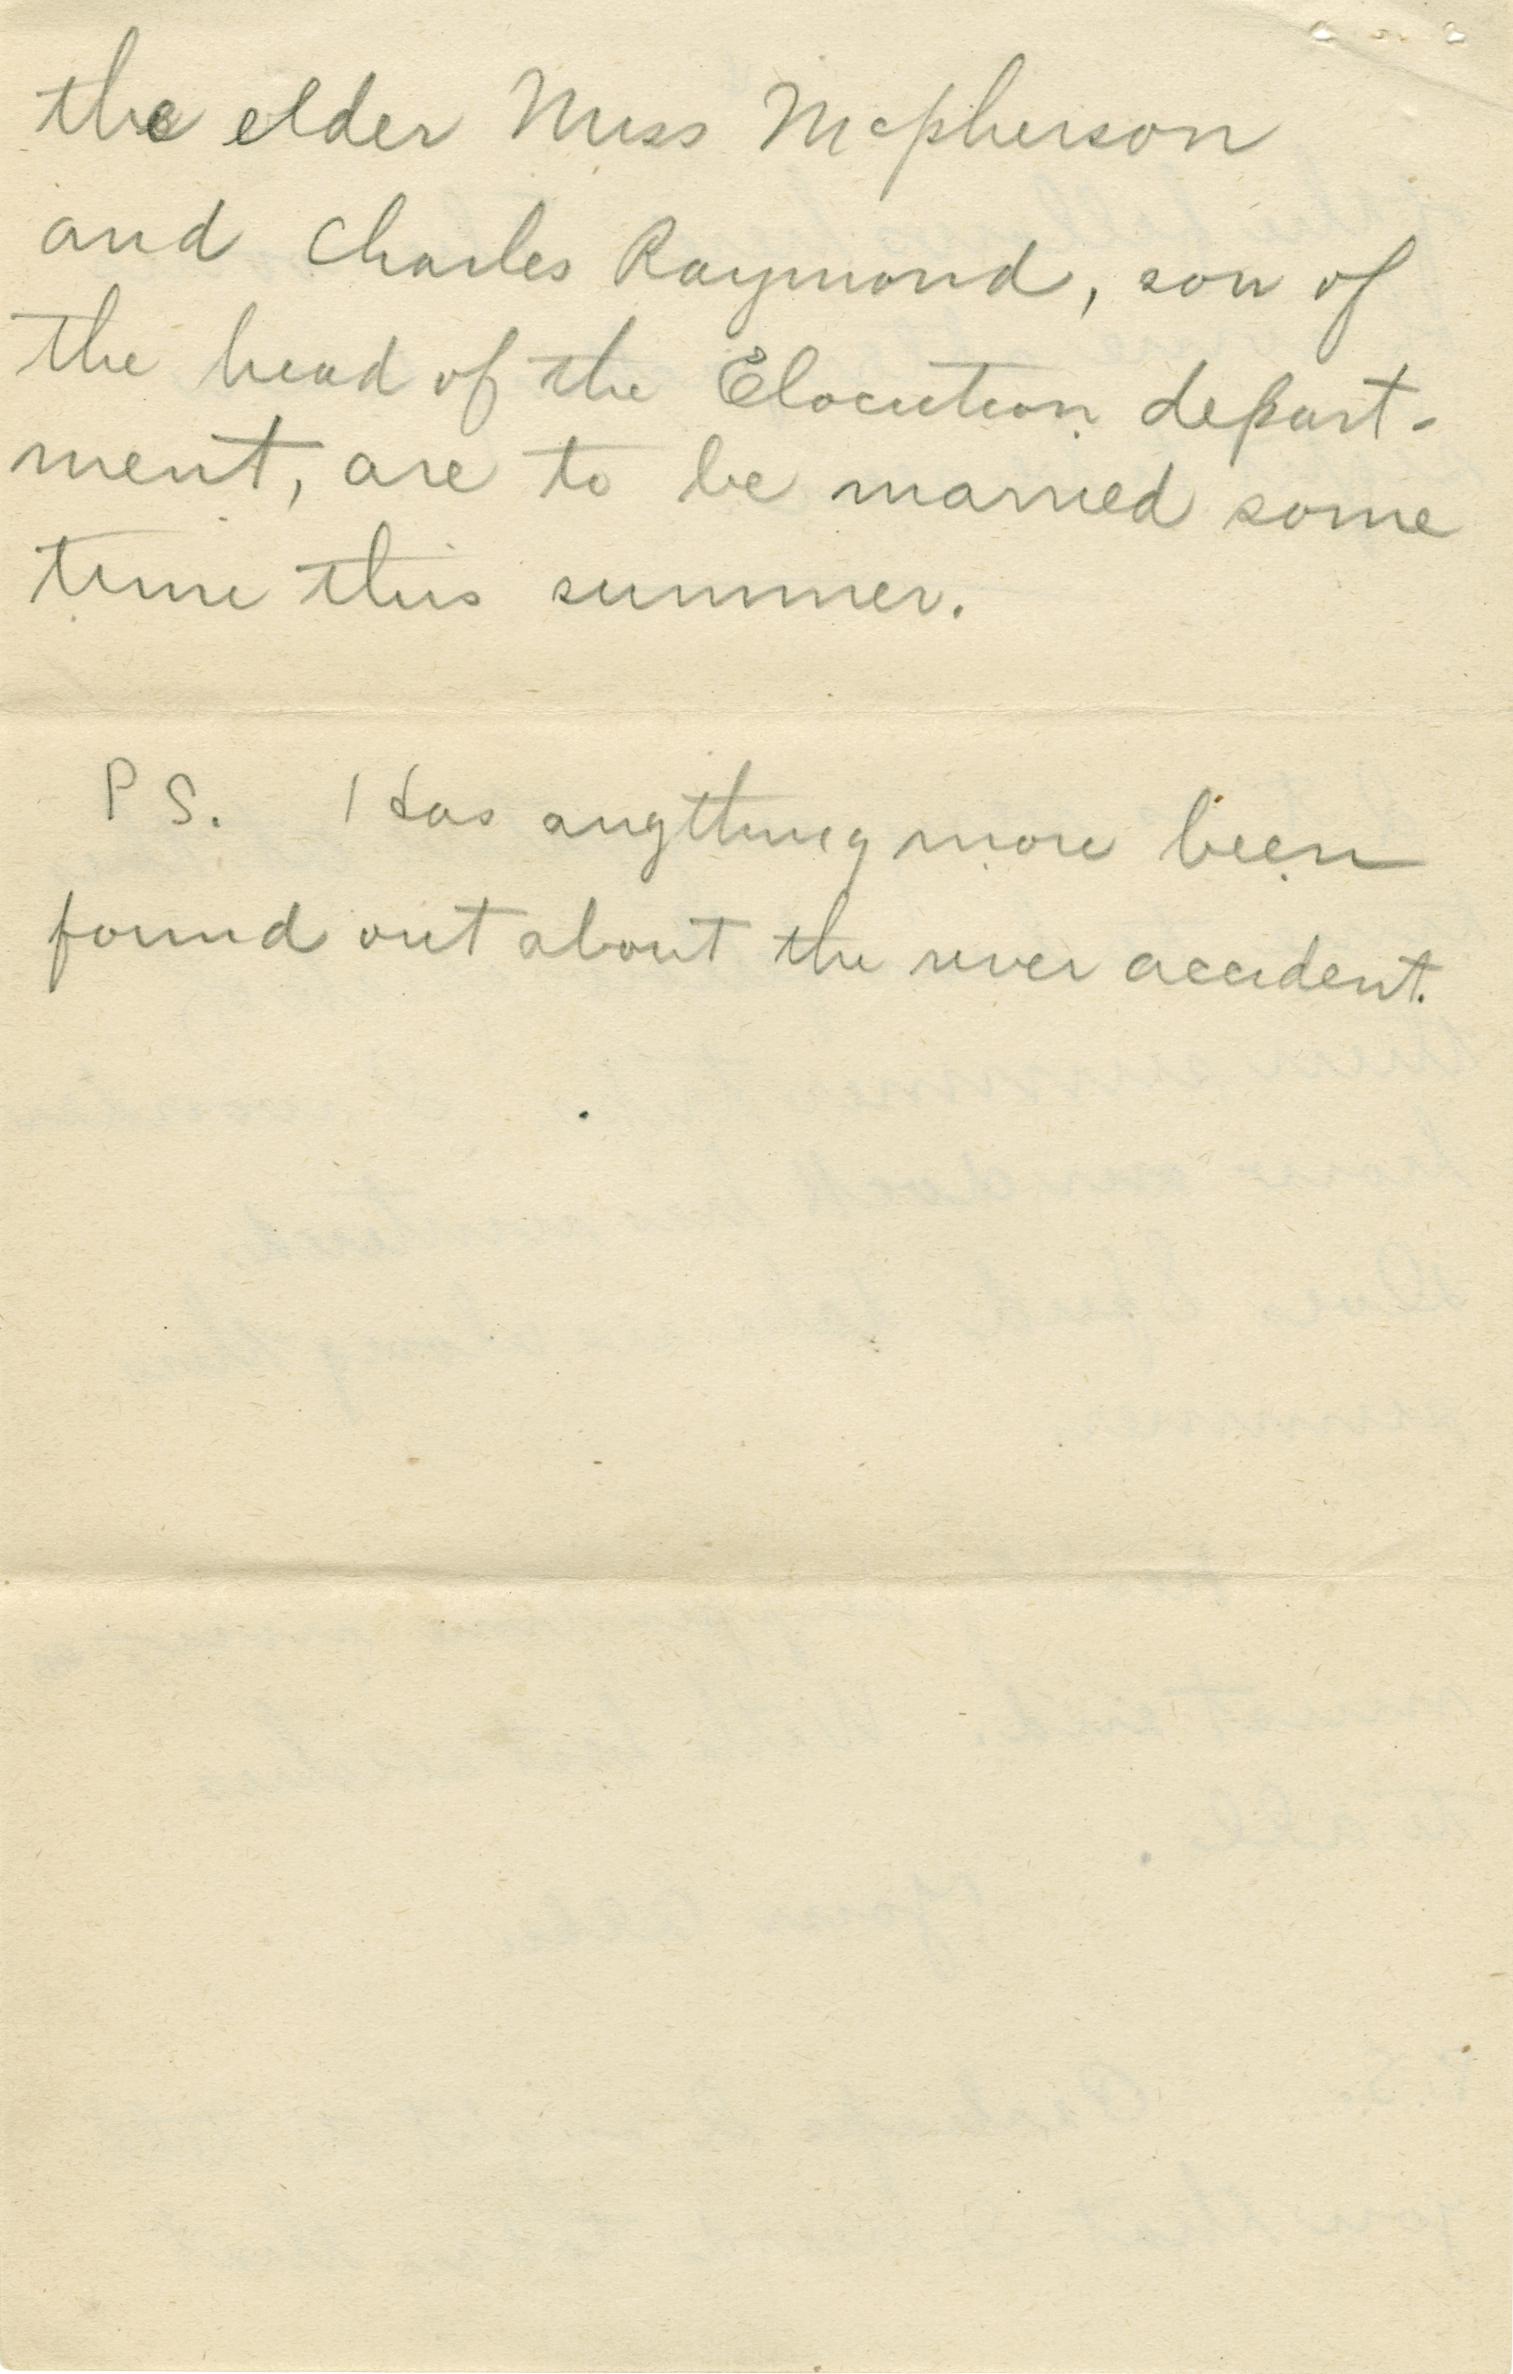 the elder Miss Mcpherson
and Charles Raymond, son of
the head of the Elocution depart-
ment, are to be married some
time this summer.
P S. Has anything more been
found out about the river accident.